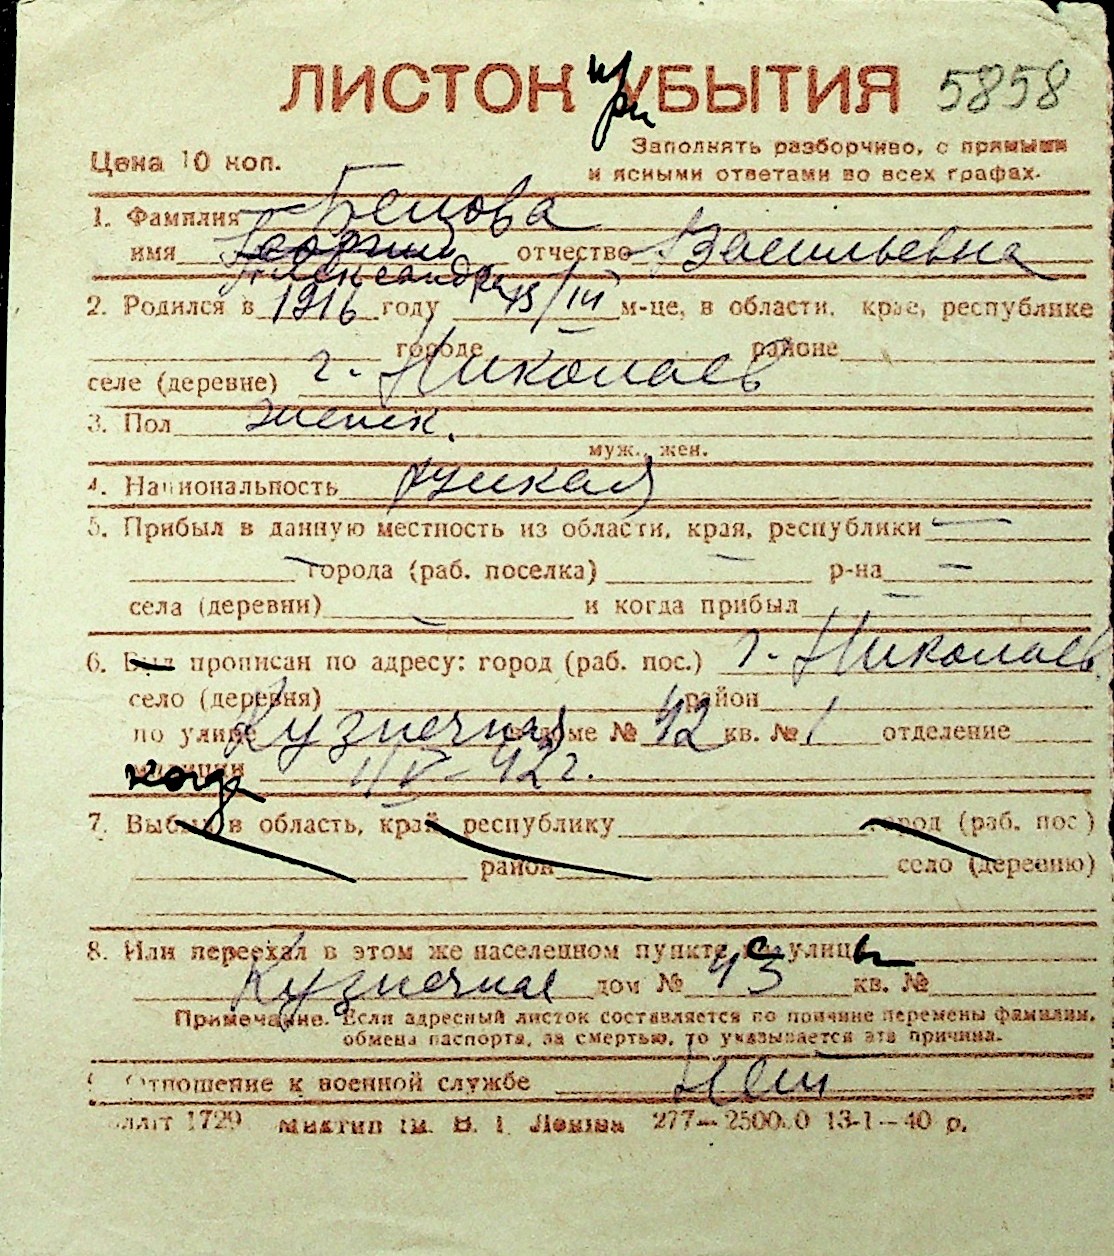 ЛИСТОК при УБЫТИЯ 5858
Цена 10 коп.
Заполнять разборчиво, с прямыми
и ясными ответами во всех графах.
1. Фамилия Бецова
имя Георгий отчество Васильевна
Александра
2. Родился в 1916 году 15/III м-це, в области, крае, республике
городе районе
селе (деревне) г. Николаев
3. Пол женск.
муж., жен.
4. Национальность русская
5. Прибыл в данную местность из области, края, республики —
— города (раб. поселка) — р-на —
села (деревни) — и когда прибыл —
6. Был прописан по адресу: город (раб. пос.) г. Николаев
село (деревня) район
по улице Кузнечная в доме № 42 кв. № 1 отделение
милиции когда 1/IV-42 г.
7. Выбыл в область, край, республику город (раб. пос.)
район село (деревню)
8. Или переехал в этом же населенном пункте с улицы
Кузнечная дом № 43 кв. №
Примечание. Если адресный листок составляется по причине перемены фамилии,
обмена паспорта, за смертью, то указывается эта причина.
9. Отношение к военной службе Нет
1729 им. В. І. Леніна 277—2500.0 13-1—40 р.